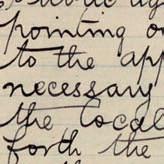 pointing o
to the app
necessary
the local
forth the